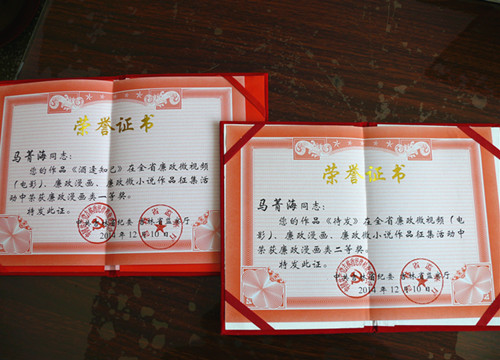 荣誉证书
马菁海同志：
您的作品《酒逢知己》在全省廉政微视频
「电影」、廉政漫画、廉政微小说作品征集活
动中荣获廉政漫画类一等奖。
特发此证。
2014年12月10日
荣誉证书
马菁海同志：
您的作品《待发》在全省廉政微视频「电
影」、廉政漫画、廉政微小说作品征集活动中
荣获廉政漫画类二等奖。
特发此证。
中共吉林省纪委 吉林省监察厅
2014年12月10日